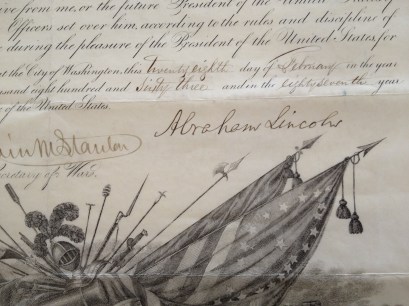 ive from me, or the future President of the United States
Officers set over him, according to the rules and discipline of
during the pleasure of the President of the United States for
at the City of Washington, this twenty eighth day of February in the year
usand eight hundred and Sixty three and in the Eighty Seventh year
of the United States.
Abraham Lincoln
win M Stanton
cretary of War.